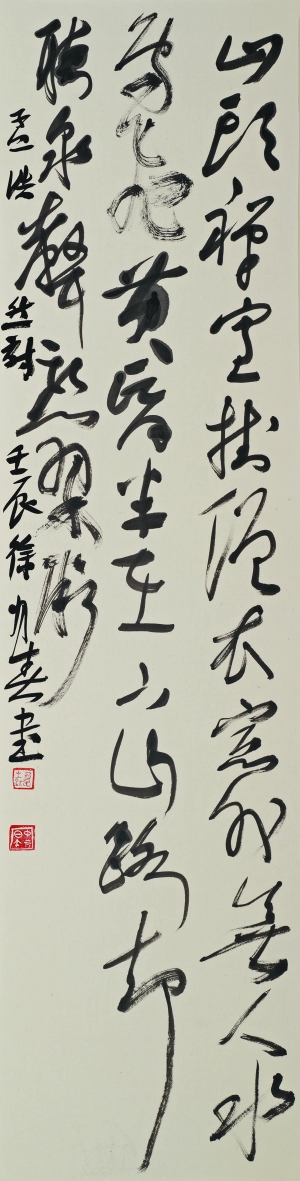 山頭禪室挂僧衣窓外無人水
鳥飛黄昏半在下山路却
聽泉聲戀翠微
孟浩然詩 壬辰徐書